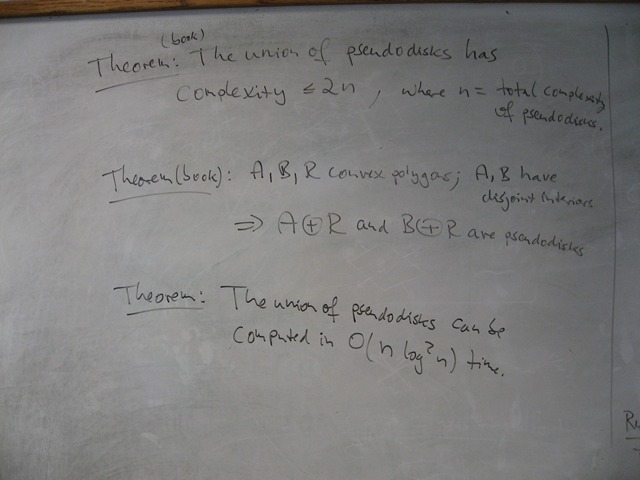 (book)
Theorem: The union of pseudodisks has
Complexity ≤ 2n, where n = total complexity
of pseudodisks.
Theorem (book): A, B, R convex polygas; A, B have
disjoint interiors
⇒ A ⊕ R and B ⊕ R are pseudodisks
Theorem: The union of pseudodisks can be
Computed in O(n log² n) time.